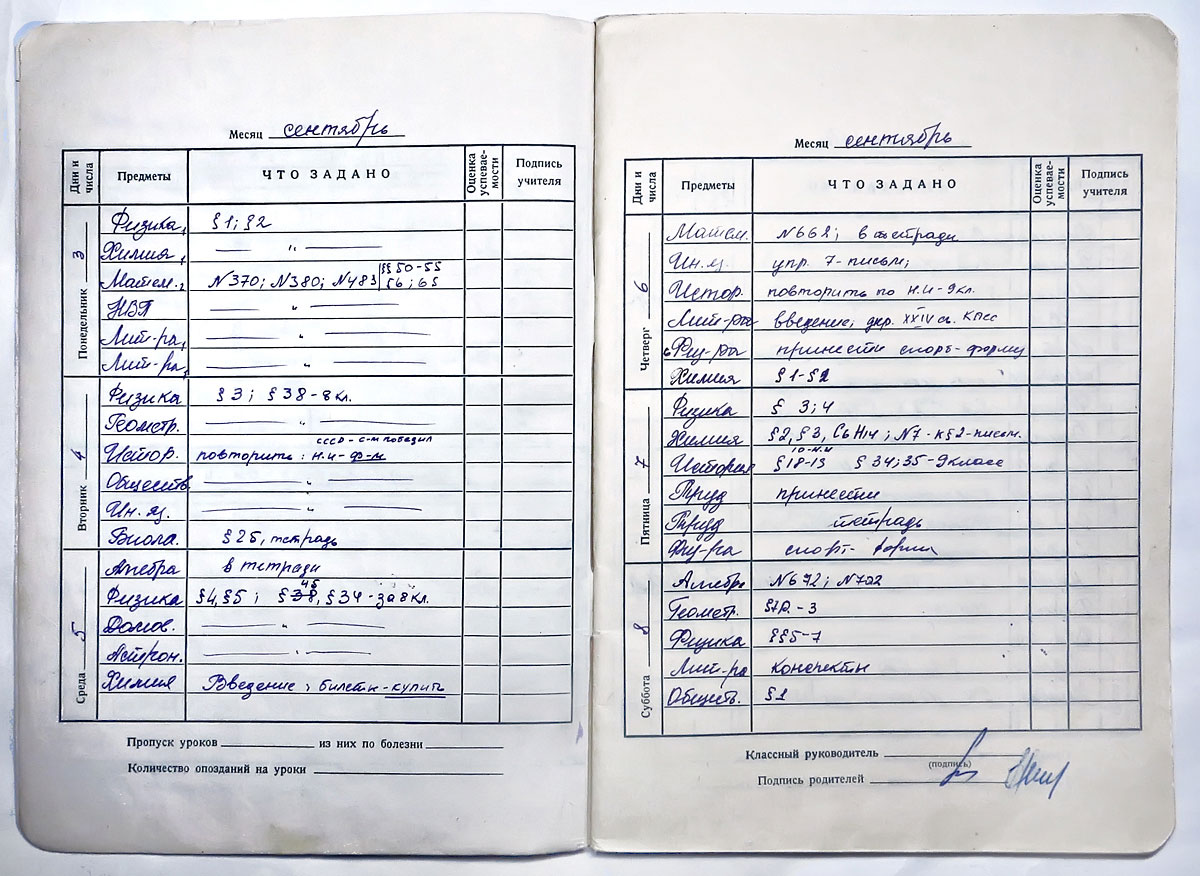 Месяц сентябрь
Дни и числа Предметы ЧТО ЗАДАНО Оценка успевае-мости Подпись учителя
Понедельник 3
Физика, §1; §2
Химия, — " —
Матем., №370; №380; №483 §§50-55 56; 65
НВП — " —
Лит-ра, — " —
Лит-ра, — " —
Вторник 4
Физика §3; §38-8 кл.
Геометр. — " —
Истор. повторить: н.и-ф-м СССР-с-м победил
Обществ. — " —
Ин. яз. — " —
Биолог. §25, тетрадь
Среда 5
Алгебра в тетради
Физика §4, §5; §38, 45 §34-за 8 кл.
Домов. — " —
Астрон. — " —
Химия Введение; билеты-купить
Пропуск уроков из них по болезни
Количество опозданий на уроки
Месяц сентябрь
Дни и числа Предметы ЧТО ЗАДАНО Оценка успевае-мости Подпись учителя
Четверг 6
Матем. №662; в тетради
Ин. яз. упр. 7-письм;
Истор. повторить по н.и-9кл.
Лит-ра введение; XXIV съ. КПСС
Физ-ра принести спорт-форму
Химия §1-§2
Пятница 7
Физика § 3; 4
Химия §2, §3, C6H14; №7-к §2-письм.
История §18-19 10-н.и §34; 35-9класс
Труд принести
Труд тетрадь
Физ-ра спорт-форма
Суббота 8
Алгебра №692; №702
Геометр. §1-3
Физика §§5-7
Лит-ра конспекты
Обществ. §1
Классный руководитель
(подпись)
Подпись родителей